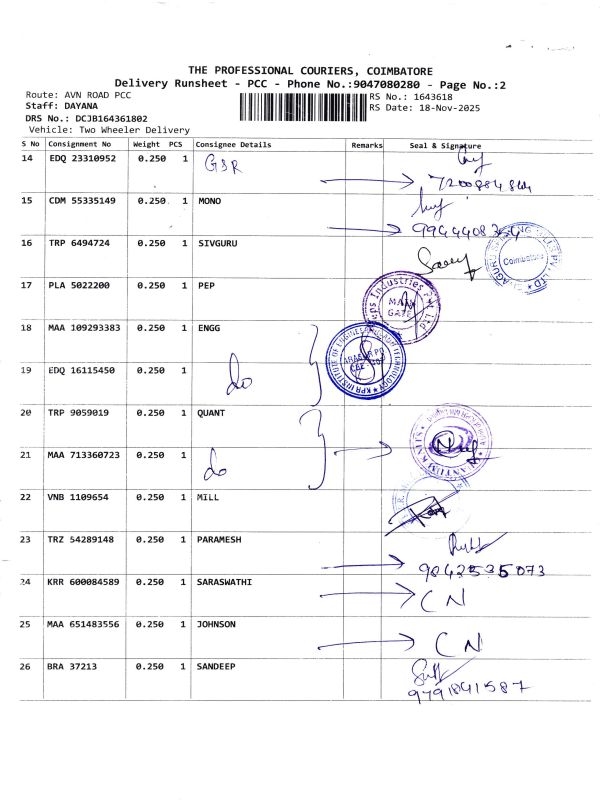 THE PROFESSIONAL COURIERS, COIMBATORE
Delivery Runsheet - PCC - Phone No.:9047080280 - Page No.:2
Route: AVN ROAD PCC
RS No.: 1643618
Staff: DAYANA
RS Date: 18-Nov-2025
DRS No.: DCJB164361802
Vehicle: Two Wheeler Delivery
S No Consignment No Weight PCS Consignee Details Remarks Seal & Signature
14 EDQ 23310952 0.250 1 GSR
15 CDM 55335149 0.250 1 MONO
16 TRP 6494724 0.250 1 SIVGURU
Coimbatore
17 PLA 5022200 0.250 1 PEP
Industries
MAIN
GATE
18 MAA 109293383 0.250 1 ENGG
KPR INSTITUTE OF ENGINEERING AND TECHNOLOGY
19 EDQ 16115450 0.250 1
do
20 TRP 9059019 0.250 1 QUANT
21 MAA 713360723 0.250 1
do
22 VNB 1109654 0.250 1 MILL
23 TRZ 54289148 0.250 1 PARAMESH
9842535073
24 KRR 600084589 0.250 1 SARASWATHI
CN
25 MAA 651483556 0.250 1 JOHNSON
CN
26 BRA 37213 0.250 1 SANDEEP
9791841587